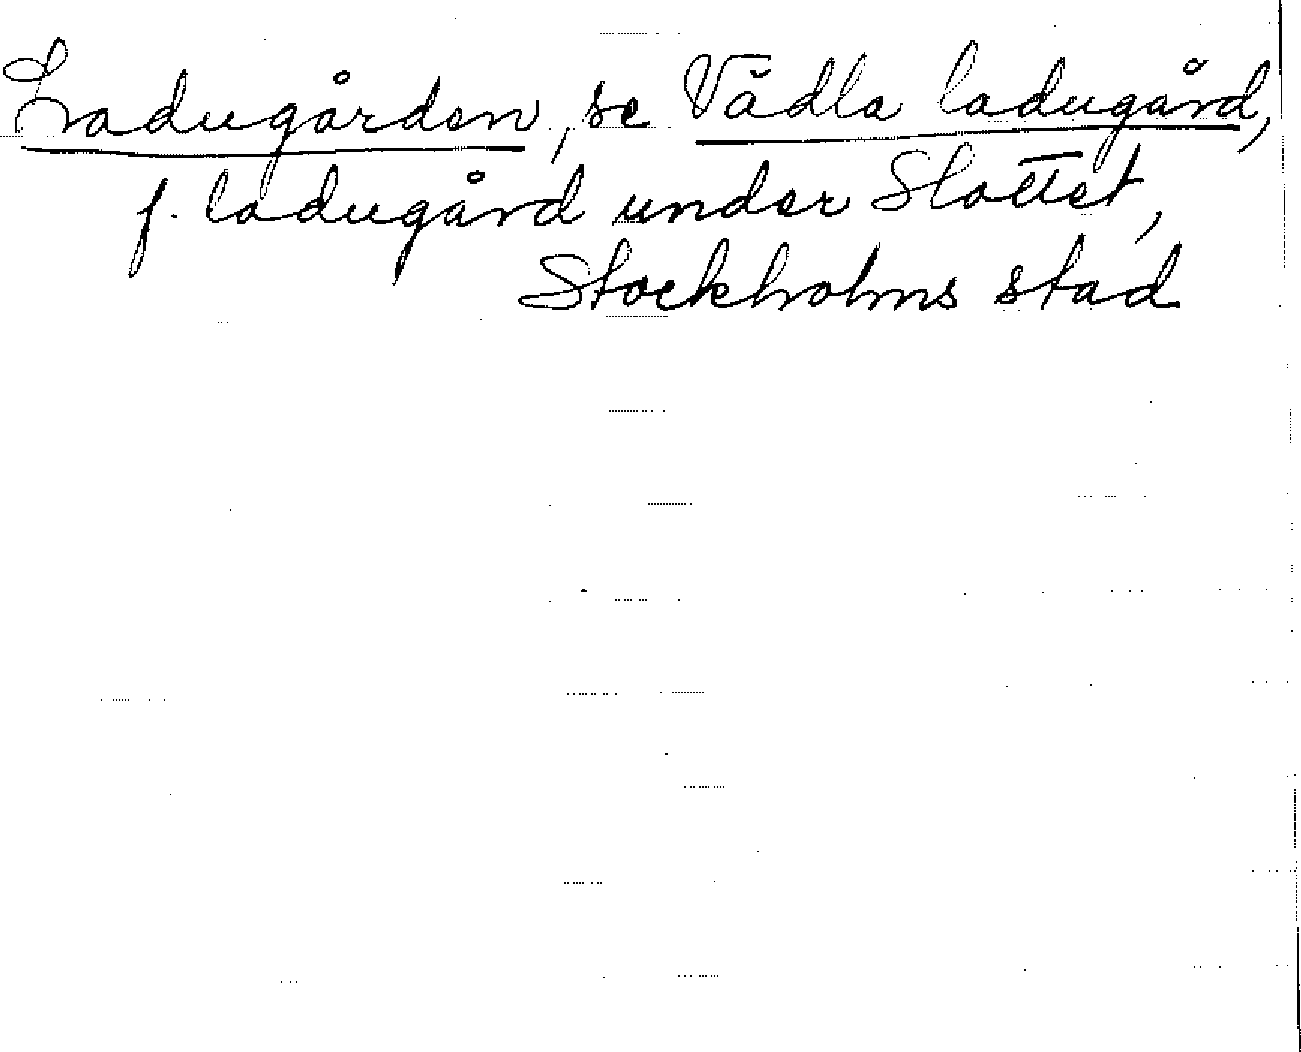 Ladugården, se Vädla ladugård,
f. ladugård under Slottet,
Stockholms stad